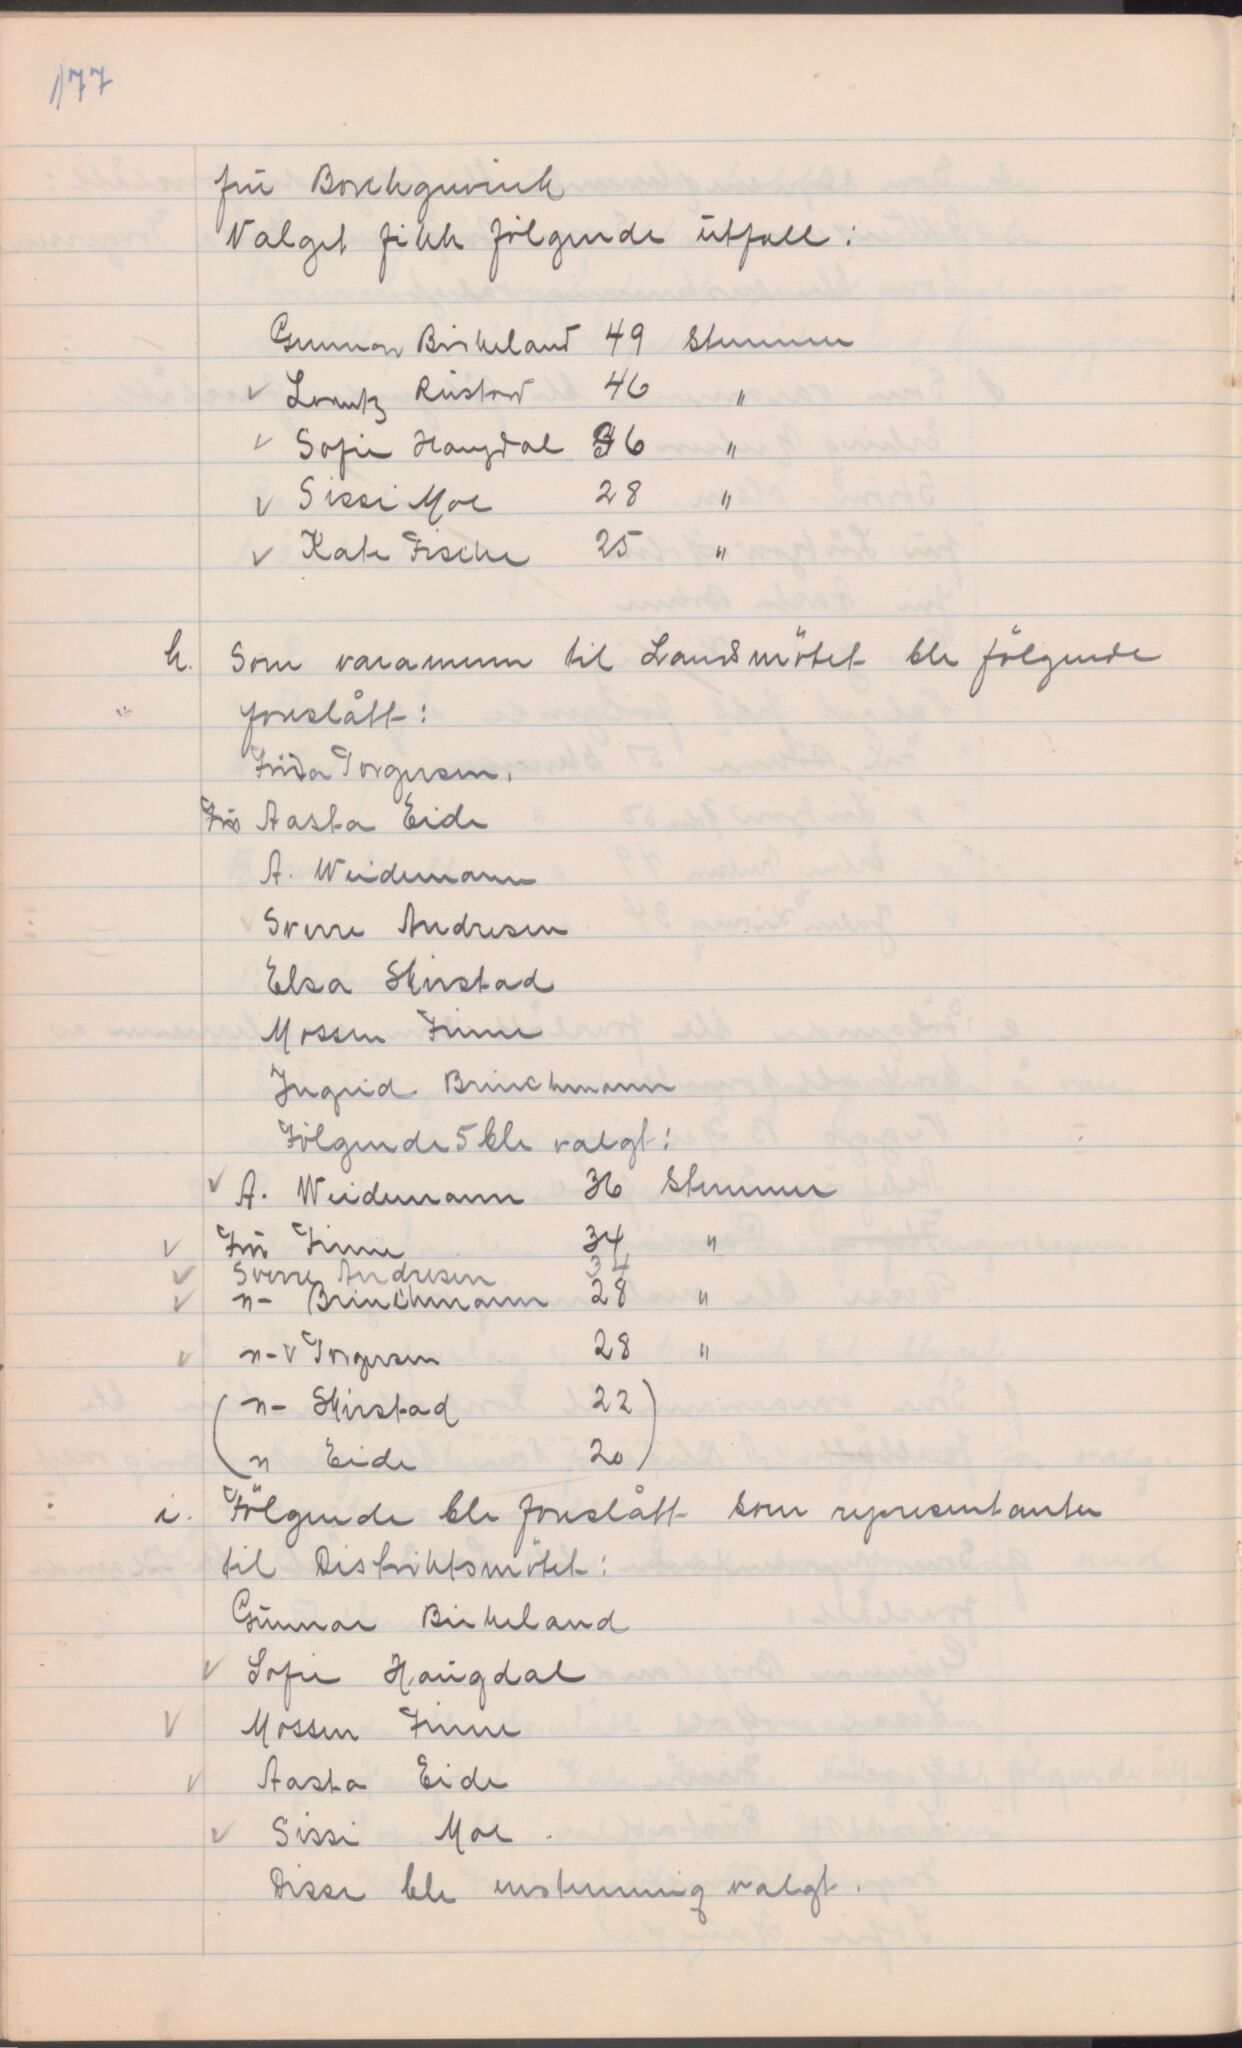 177
frü Borchgrevink
Valget fikk følgende ütfall:
Gunnar Birkeland 49 stemmer
✓ Lorentz Rüstad 46 "
✓ Sofie Haugdal 36 "
✓ Sissi Moe 28 "
✓ Kate Fische 25 "
h. Som varamenn til Landsmötet ble fölgende
foreslått:
Frida Torgersen.
Frü Aasta Eide
A. Weidemann
Sverre Andresen
Elsa Skirstad
Mossen Finne
Ingrid Brinchmann
Følgende 5 ble valgt:
✓ A. Weidemann 36 stemmer
✓ Frü Finne 34 "
✓ Sverre Andresen 34
✓ n- Brinchmann 28 "
✓ n- v Torgersen 28 "
(n- Skirstad 22)
(n Eide 20)
i. Fölgende ble foreslått som representanter
til Distriktsmötet:
Günnar Birkeland
✓ Sofie Haügdal
✓ Mossen Finne
✓ Aasta Eide
✓ Sissi Moe.
Disse ble enstemmig valgt.